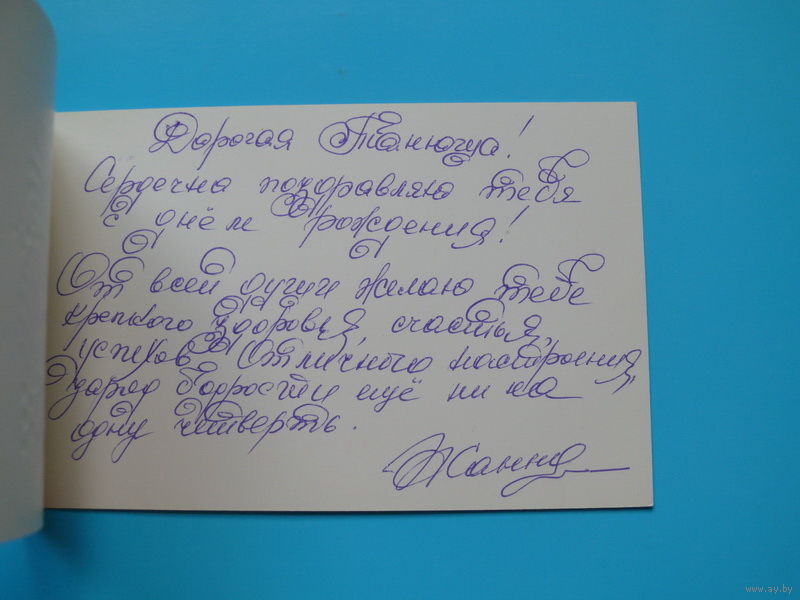 Дорогая Танюша!
Сердечно поздравляю тебя
с днём рождения!
От всей души желаю тебе
крепкого здоровья, счастья,
успехов, отличного настроения,
заряд бодрости ещё ни на
одну четверть.
Жанна
www.ay.by